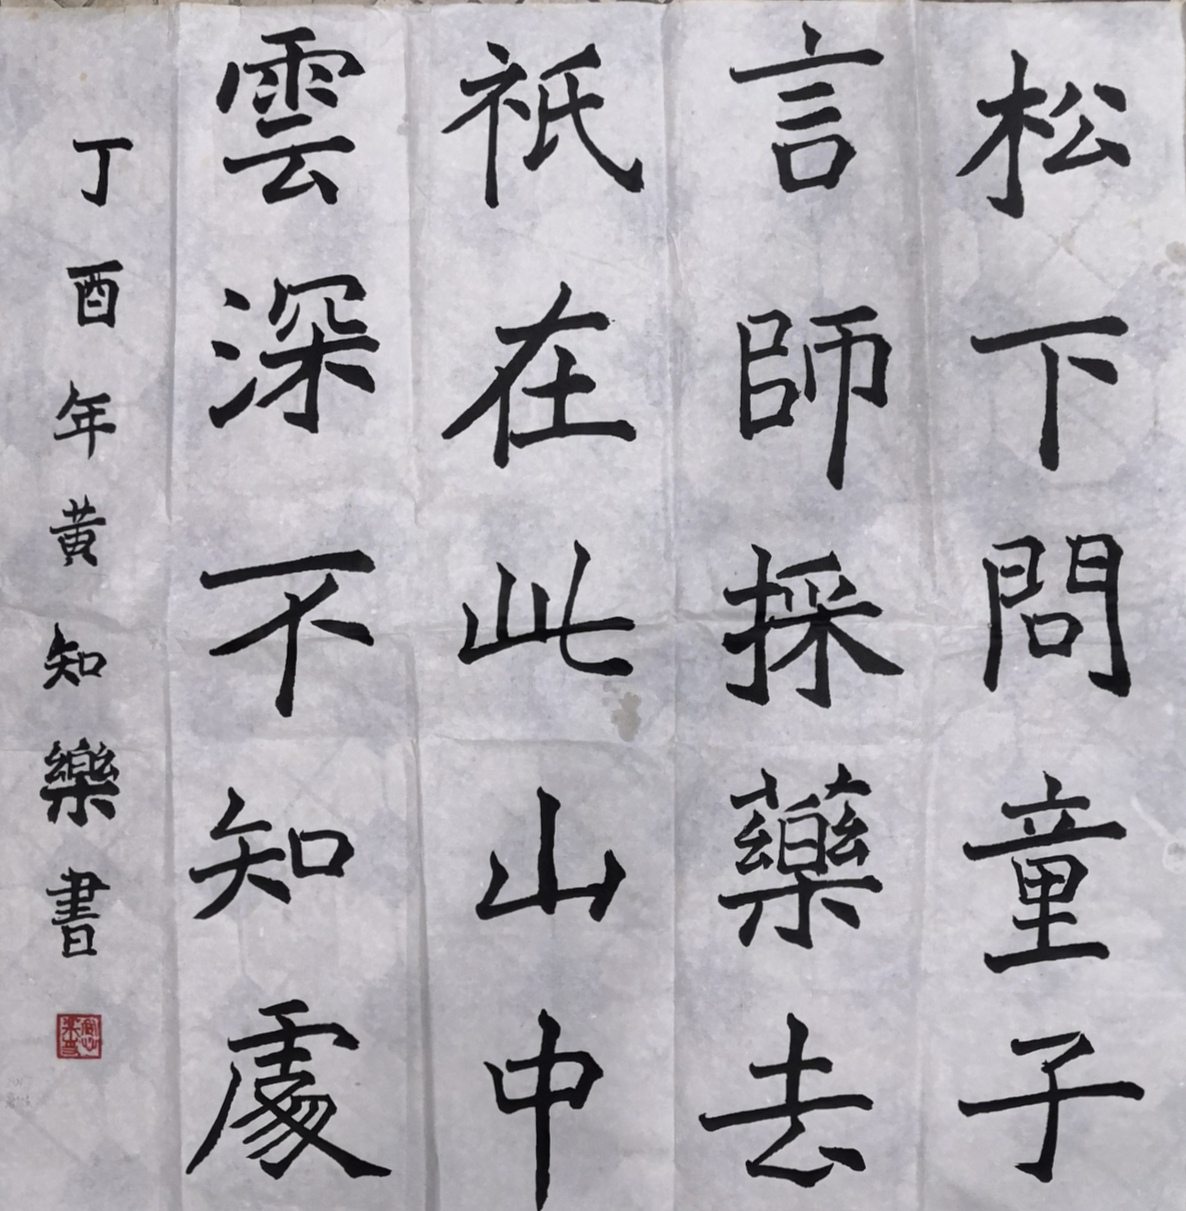 松下問童子
言師採藥去
祇在此山中
雲深不知處
丁酉年黄知樂書